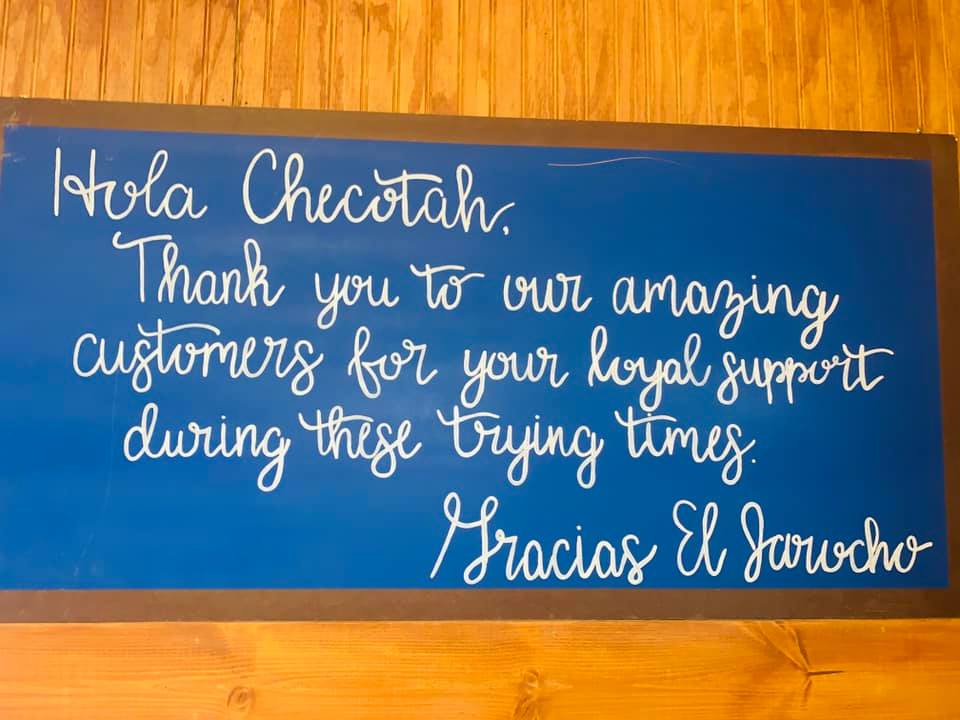 Hola Checotah,
Thank you to our amazing
customers for your loyal support
during these trying times.
Gracias El Jarocho